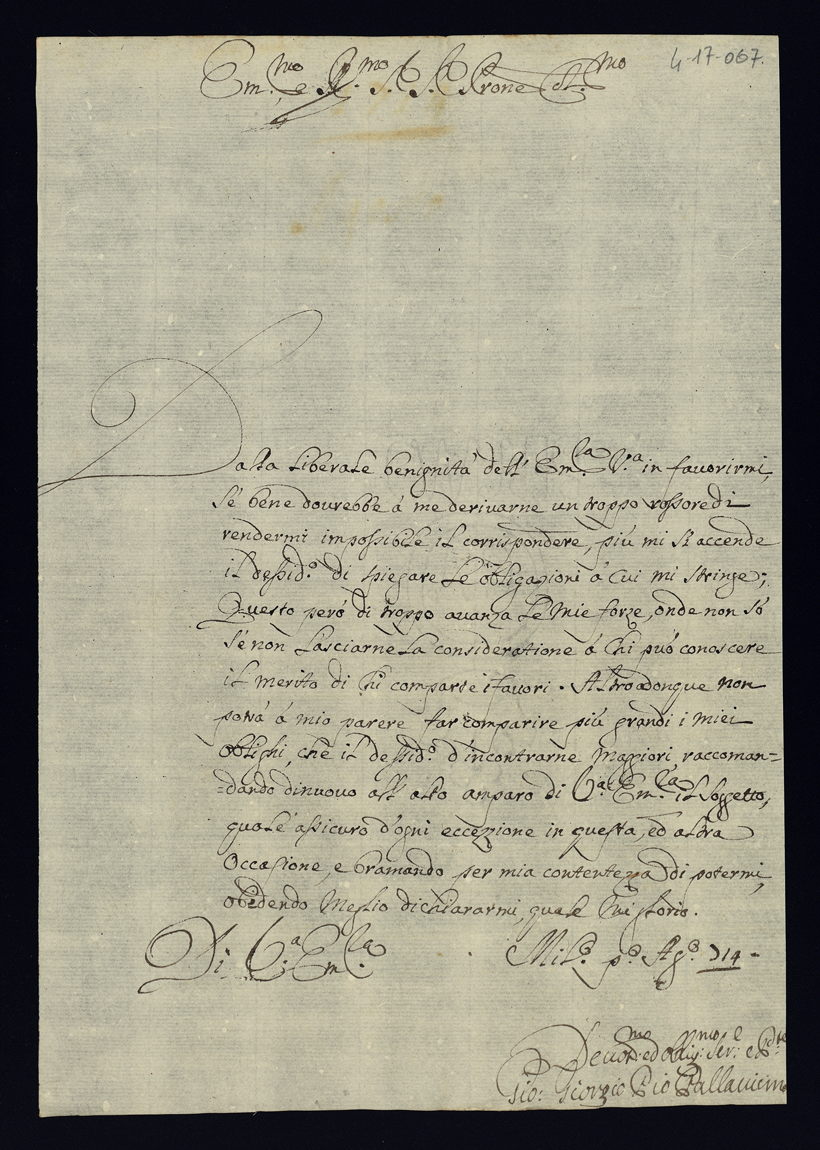 4-17-067.
Em.mo e R.mo S.r S.r P.rone Col.mo
Dalla liberale benignità dell' Em.za V.ra in favorirmi,
sé bene dourebbe à me deriuarne un troppo rossore di
rendermi impossibile il corrispondere, più mi si accende
il dessid.o di spiegare le obligazioni à cui mi stringe;
Questo però di troppo auanza le mie forze, onde non sò
sé non lasciarne la consideratione à chi può conoscere
il merito di chi comparte i fauori. Altro adonque non
potrà à mio parere far comparire più grandi i miei
oblighi, che il dessid.o d'incontrarne maggiori, raccoman=
=dando dinuouo all' alto amparo di V.a Em.za il soggetto,
quale assicuro d'ogni eccezione in questa, ed altra
Occasione, e bramando per mia contentezza di potermi,
obedendo meglio dichiararmi, quale mi glorio.
Di V.a Em.za
Mil.o p.o Ag.o 714
Deuot.mo ed oblig.mo Ser.e e P.te
Gio: Giorgio Pio Pallauicino